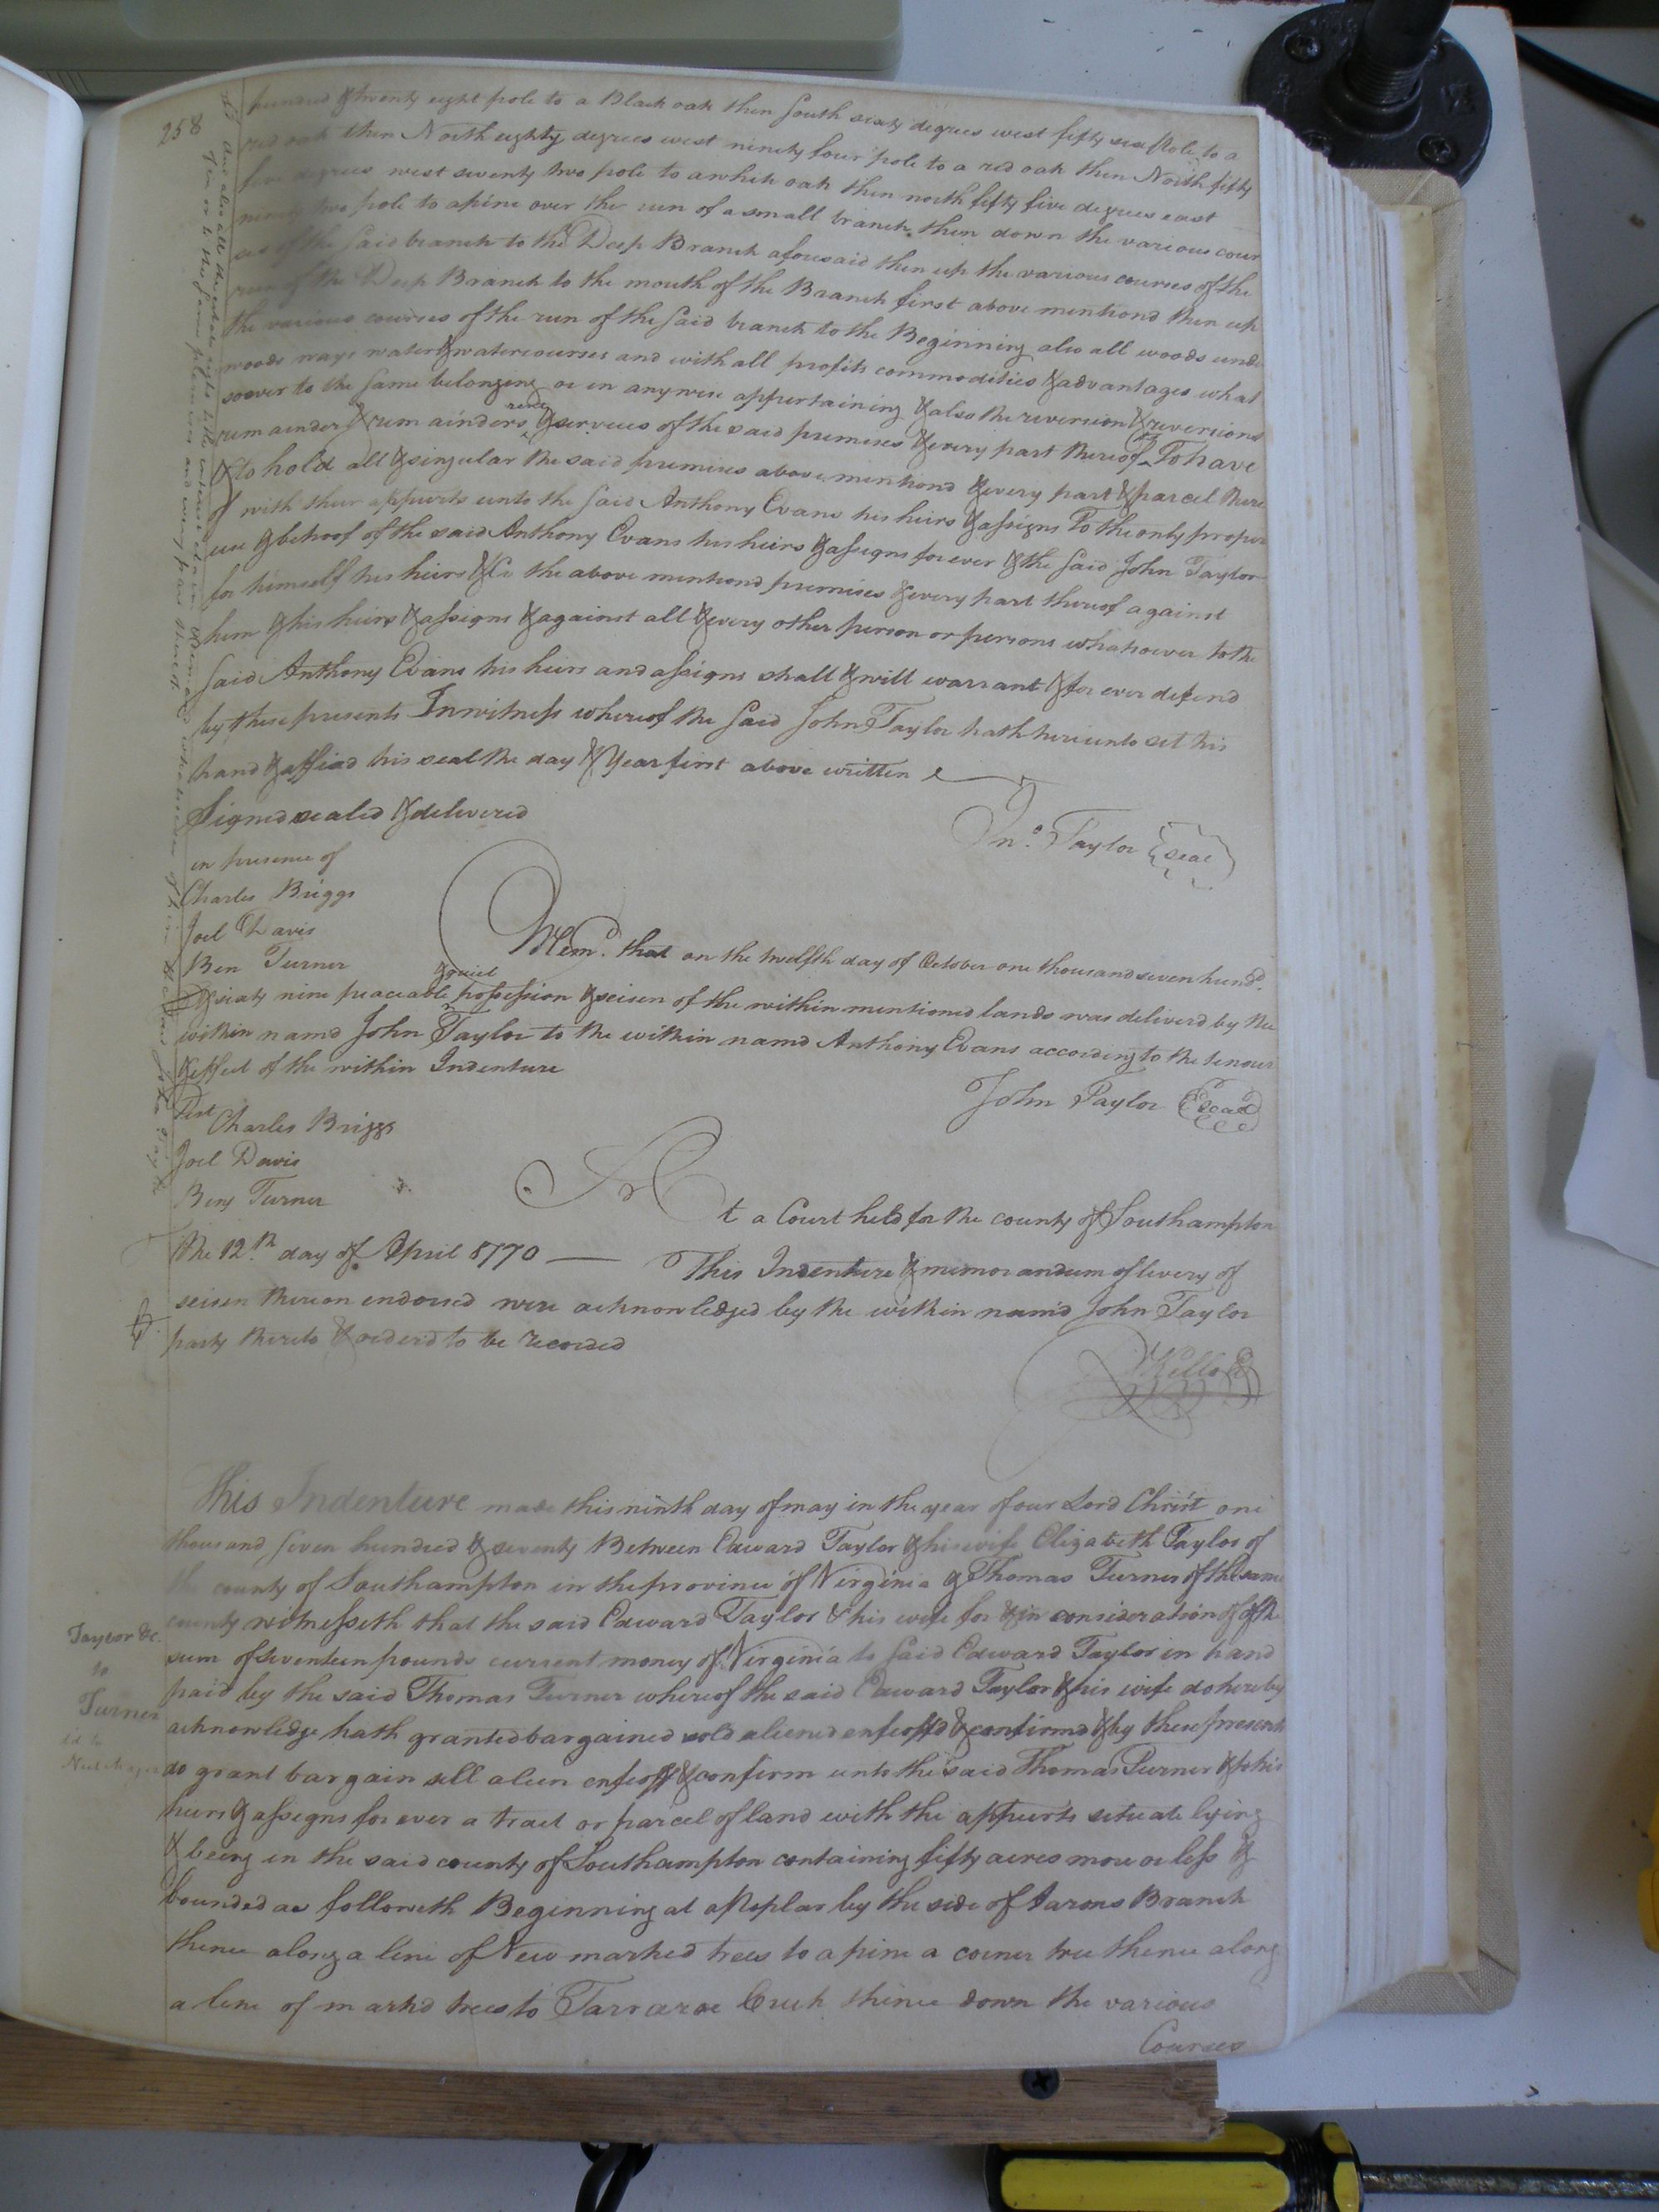 258
hundred & twenty eight pole to a Black oak then South sixty degrees west fifty six Pole to a
red oak then North eighty degrees west ninety four pole to a red oak then North fifty
five degrees west seventy two pole to a white oak then north fifty five degrees east
ninety two pole to a pine over the run of a small branch then down the various cour
ses of the said branch to the Deep Branch aforesaid then up the various courses of the
run of the Deep Branch to the mouth of the Branch first above mentiond then up
the various courses of the run of the said branch to the Beginning also all woods und
woods ways water & watercourses and with all profits commodities & advantages what
soever to the same belonging or in anywise appertaining & also the reversion & reversions
remainder & remainders rents & services of the said premises & every part thereof To have
& to hold all & singular the said premises above mentiond & every part & parcel there
of with their appurts unto the said Anthony Evans his heirs & assigns To the only proper
use & behoof of the said Anthony Evans his heirs & assigns for ever & the said John Taylor
for himself his heirs &c the above mentiond premises & every part thereof against
him & his heirs & assigns & against all & every other person or persons whatsoever to the
said Anthony Evans his heirs and assigns shall & will warrant & for ever defend
by these presents In witness whereof the said John Taylor hath hereunto set his
hand & affixd his seal the day & Year first above written
Signed sealed & deliverd
Jno. Taylor seal
in presence of
Charles Briggs
Joel Davis
Ben Turner
And also all the estate right title interest claim & demand whatsoever of him the said John Taylor
of in or to the same premises and every part thereof
Mem.d that on the twelfth day of October one thousand seven hund.d
& sixty nine peaceable & quiet possession & seisen of the within mentioned lands was deliverd by the
within namd John Taylor to the within namd Anthony Evans according to the tenour
& effect of the within Indenture
John Taylor seal
Test Charles Briggs
Joel Davis
Benj Turner
At a Court held for the county of Southampton
the 12.th day of April 1770 — This Indenture & memorandum of livery of
seisen thereon endorsed were acknowledged by the within nam'd John Taylor
party thereto & orderd to be recorded
This Indenture made this ninth day of may in the year of our Lord Christ one
thousand seven hundred & seventy Between Edward Taylor & his wife Elizabeth Taylor of
the county of Southampton in the province of Virginia & Thomas Turner of the same
county witnesseth that the said Edward Taylor & his wife for & in consideration of the
sum of seventeen pounds current money of Virginia to said Edward Taylor in hand
paid by the said Thomas Turner whereof the said Edward Taylor & his wife do hereby
acknowledge hath granted bargained sold aliened enfeoffd & confirmd & by these presents
do grant bargain sell alien enfeoff & confirm unto the said Thomas Turner & to his
heirs & assigns for ever a tract or parcel of land with the appurts situate lying
& being in the said county of Southampton containing fifty acres more or less &
bounded as followeth Beginning at a Poplar by the side of Aarons Branch
thence along a line of New marked trees to a pine a corner tree thence along
a line of markd trees to Tarrarae Creek thence down the various
Courses
Taylor &c.
to
Turner